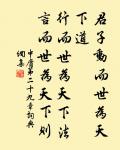 君子動而世為天
下道
行而世為天下法
言而世為天下則
中庸第二十九章詞典
網集